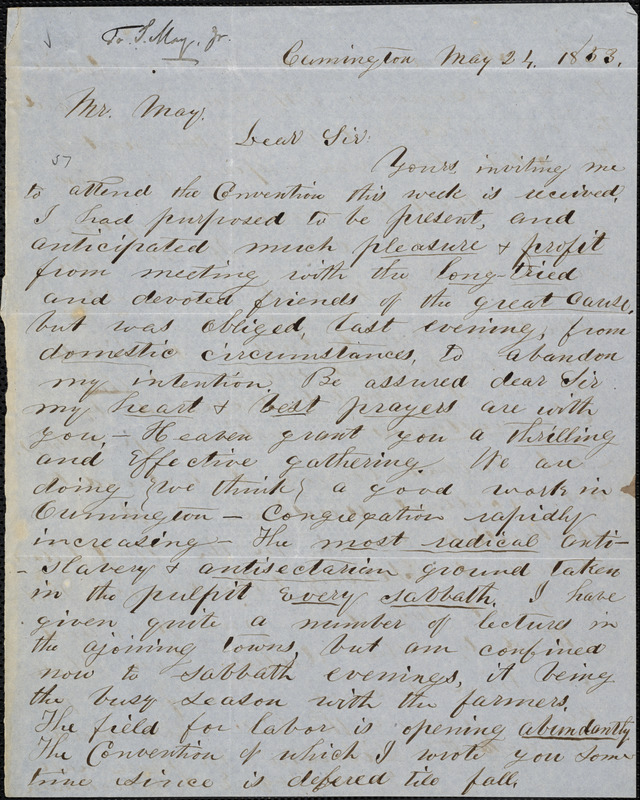 To S. May, Jr.
Cumington May 24, 1853.
Mr. May.
Dear Sir:
57
Yours inviting me
to attend the Convention this week is received.
I had purposed to be present, and
anticipated much pleasure & profit
from meeting with the long-tried
and devoted friends of the great cause,
but was obliged, last evening, from
domestic circumstances, to abandon
my intention. Be assured dear Sir
my heart & best prayers are with
you, - Heaven grant you a thrilling
and Effective gathering. We are
doing {we think} a good work in
Cumington - Congregation rapidly
increasing - The most radical anti-
-slavery & antisectarian ground taken
in the pulpit every sabbath. I have
given quite a number of lectures in
the ajoining towns, but am confined
now to sabbath evenings, it being
the busy season with the farmers.
The field for labor is opening abundantly
The Convention of which I wrote you some
time since is defered till fall.